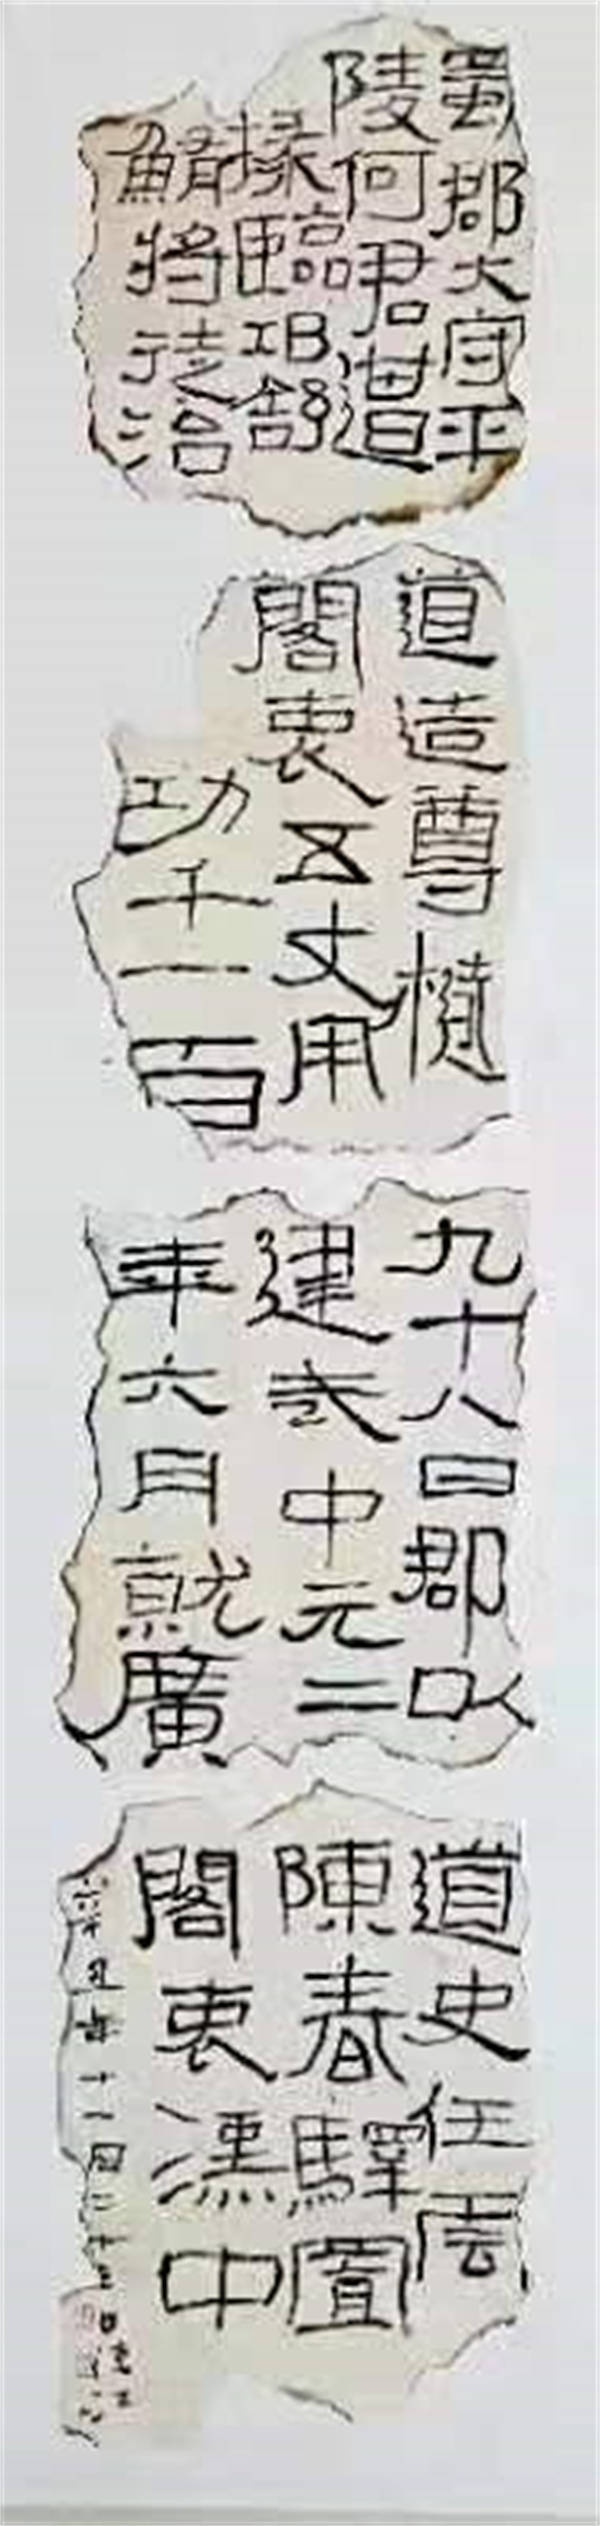 蜀郡大守平
陵何君遣
掾臨邛舒
鮪將徒治
道造尊楗
閣袤五丈用
功千一百
九十八日郡以
建武中元二
年六月就廣
道史任雲
陳春驛置
閣袤中
丑年十一月二十日